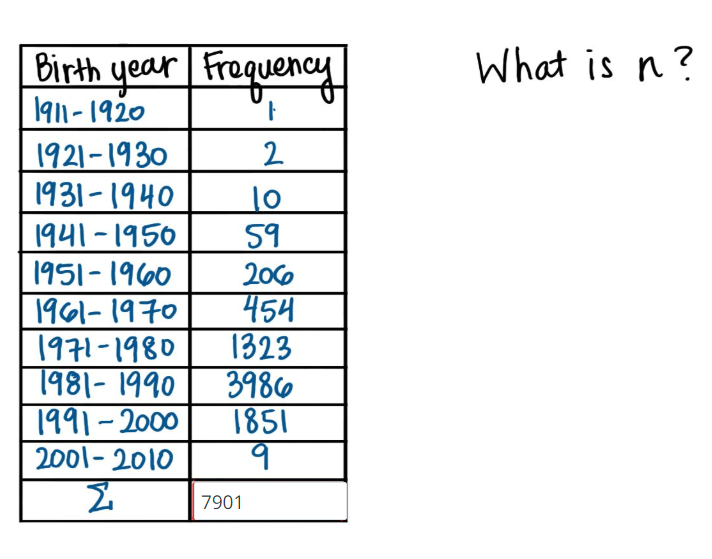 Birth year Frequency
What is n?
1911-1920 1
1921-1930 2
1931-1940 10
1941-1950 59
1951-1960 206
1961-1970 454
1971-1980 1323
1981-1990 3986
1991-2000 1851
2001-2010 9
Σ 7901